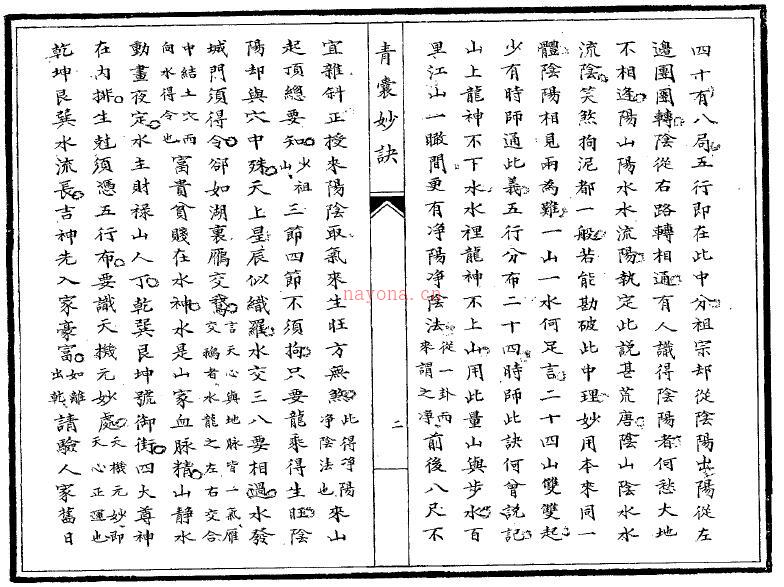 四十有八局五行即在此中分祖宗却從陰陽出陽從左
邊團團轉陰從右路轉相通有人識得陰陽者何愁大地
不相逢陽山陽水水流陽執定此說甚荒唐陰山陰水水
流陰笑煞拘泥都一般若能勘破此中理妙用本來同一
體陰陽相見兩為難一山一水何足言二十四山雙雙起
少有時師通此義五行分布二十四時師此訣何曾說記
山上龍神不下水水裡龍神不上山用此量山與步水百
里江山一瞰間更有淨陽淨陰法從一卦而來謂之淨前後八尺不
青囊妙訣
二
宜雜斜正授來陽陰取氣來生旺方無煞此得淨陽淨陰法也來山
起頂總要知少祖山三節四節不須拘只要龍乘得生旺陰
陽却與穴中殊天上星辰似織羅水交三八要相過水發
城門須得令卻如湖裏鴈交鵞言天心與地脉皆一氣雁交鵝者水龍之左右交合
中結土穴而向水得令也富貴貧賤在水神水是山家血脉精山靜水
動晝夜定水主財祿山人丁乾巽艮坤號御街四大尊神
在內排生尅須憑五行布要識天機元妙處天機元妙即天心正運也
乾坤艮巽水流長吉神先入家豪富如離出乾請驗人家舊日
nayona.cn